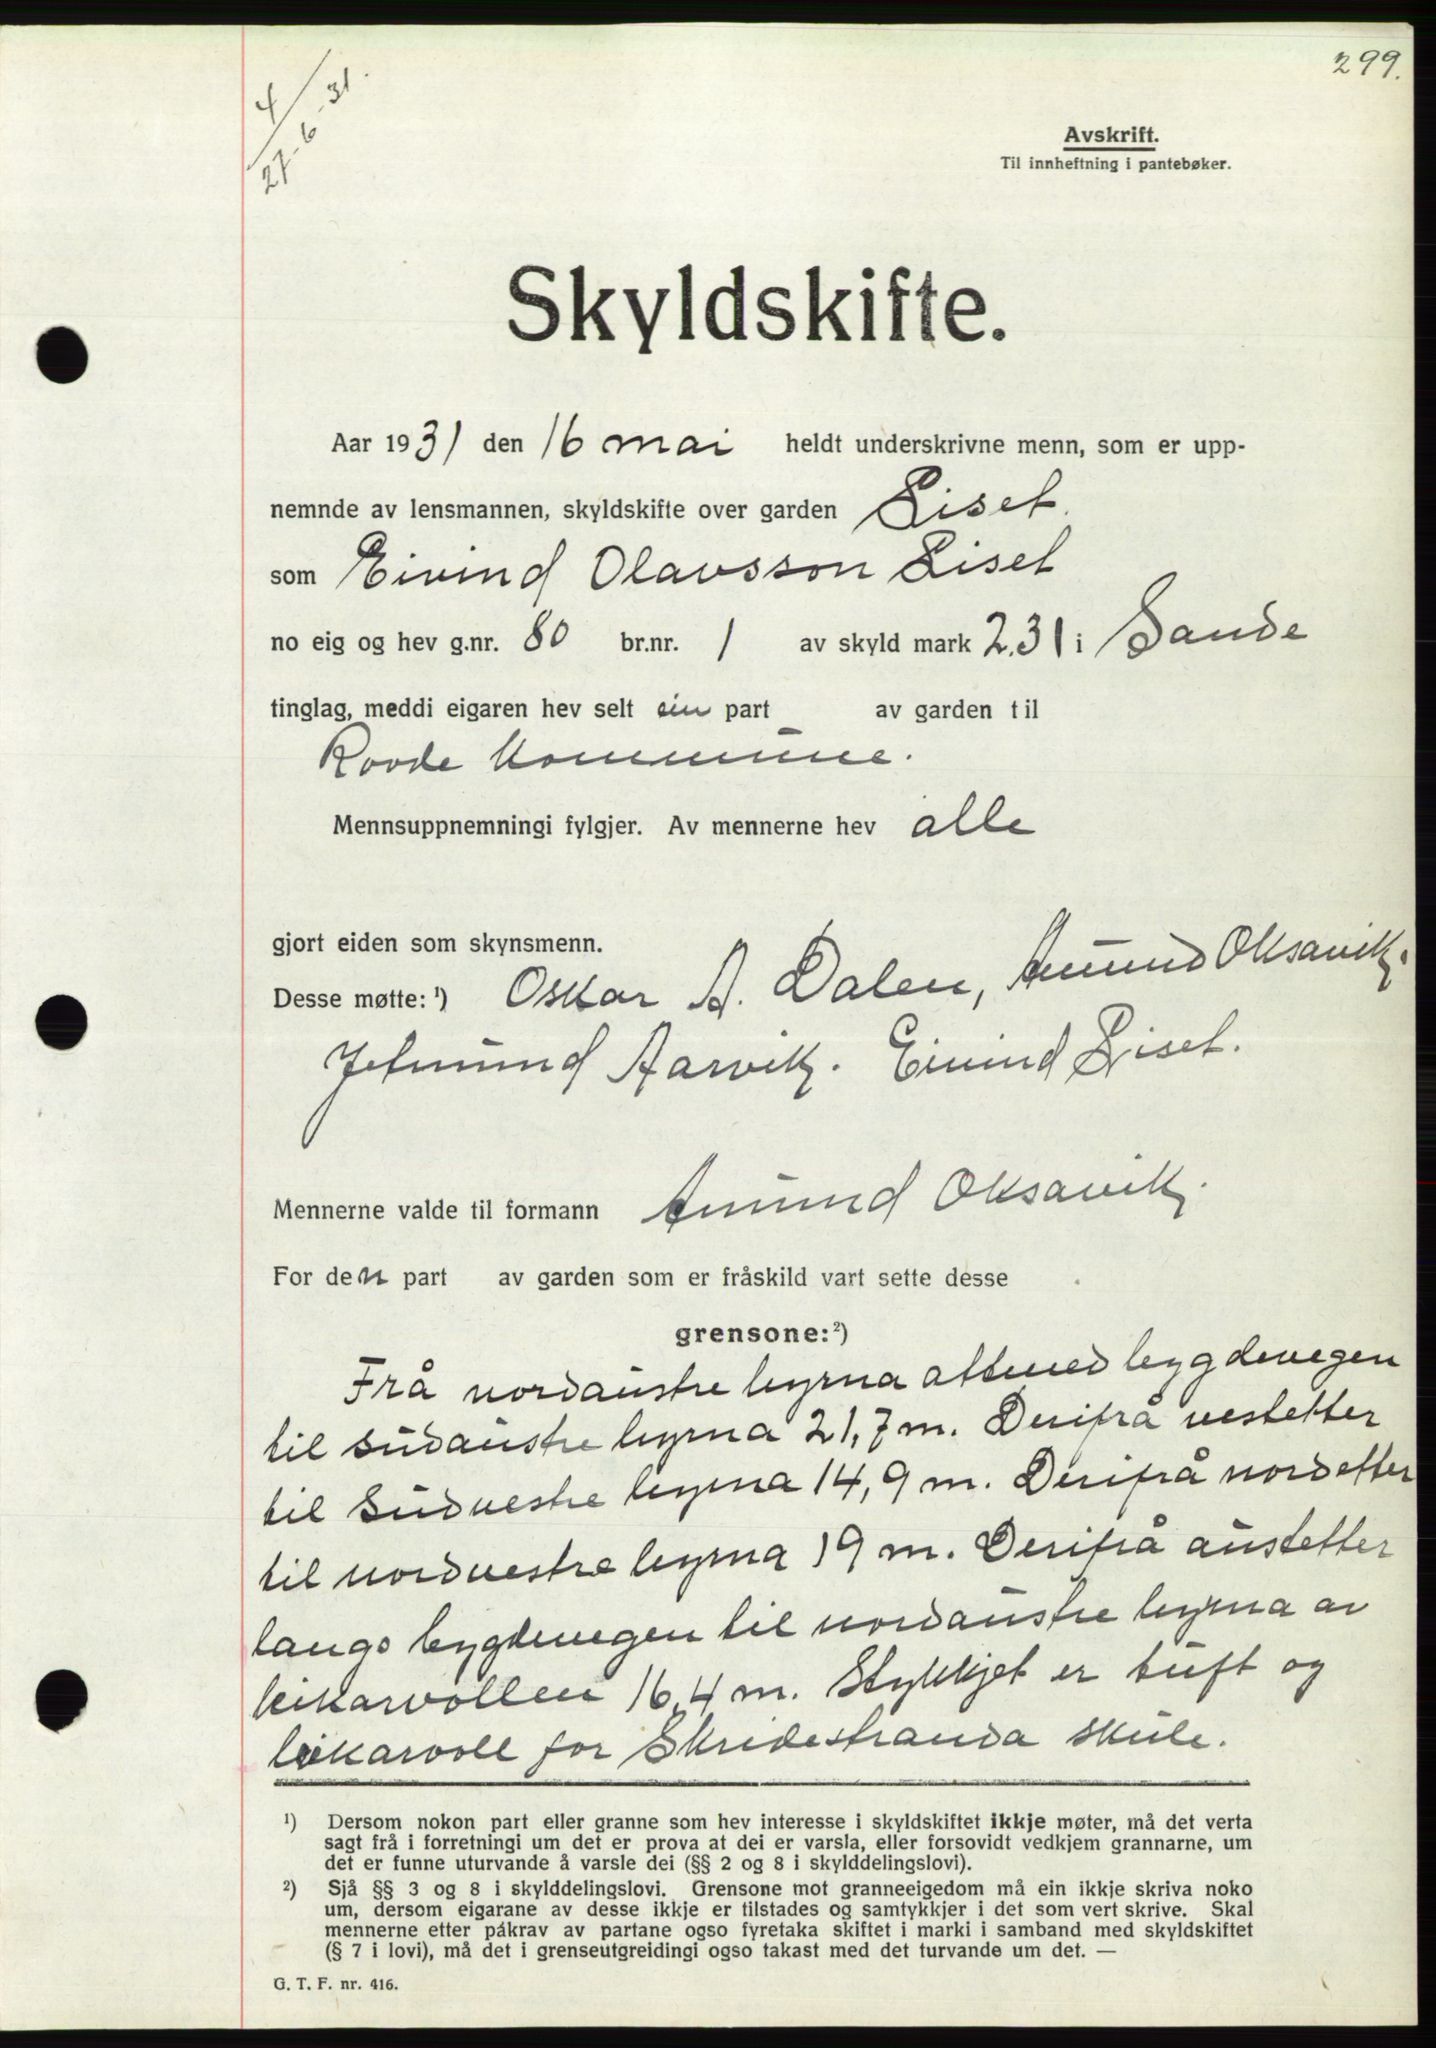 299.
4/27-6-31.
Avskrift.
Til innheftning i pantebøker.
Skyldskifte.
Aar 1931 den 16 mai heldt underskrivne menn, som er upp-
nemnde av lensmannen, skyldskifte over garden Liset.
som Eivind Olavsson Liset
no eig og hev g.nr. 80 br.nr. 1 av skyld mark 2.31 i Sande
tinglag, meddi eigaren hev selt ein part av garden til
Rovde Kommune.
Mennsuppnemningi fylgjer. Av mennerne hev alle
gjort eiden som skynsmenn.
Desse møtte: ¹) Oskar A. Dalen, Amund Oksavik.
Jetmund Aarvik. Eivind Liset.
Mennerne valde til formann Amund Oksavik.
For den part av garden som er fråskild vart sette desse
grensone: ²)
Frå nordaustre hyrna attmed bygdevegen
til sudaustre hyrna 21,7 m. Derifrå vestetter
til sudvestre hyrna 14,9 m. Derifrå nordetter
til nordvestre hyrna 19 m. Derifrå austetter
langs bygdevegen til nordaustre hyrna av
leikarvollen 16,4 m. Stykkjet er tuft og
leikarvoll for Skridestranda skule.
¹) Dersom nokon part eller granne som hev interesse i skyldskiftet ikkje møter, må det verta
sagt frå i forretningi um det er prova at dei er varsla, eller forsovidt vedkjem grannarne, um
det er funne uturvande å varsle dei (§§ 2 og 8 i skylddelingslovi).
²) Sjå §§ 3 og 8 i skylddelingslovi. Grensone mot granneeigedom må ein ikkje skriva noko
um, dersom eigarane av desse ikkje er tilstades og samtykkjer i det som vert skrive. Skal
mennerne etter påkrav av partane ogso fyretaka skiftet i marki i samband med skyldskiftet
(§ 7 i lovi), må det i grenseutgreidingi ogso takast med det turvande um det. —
G. T. F. nr. 416.